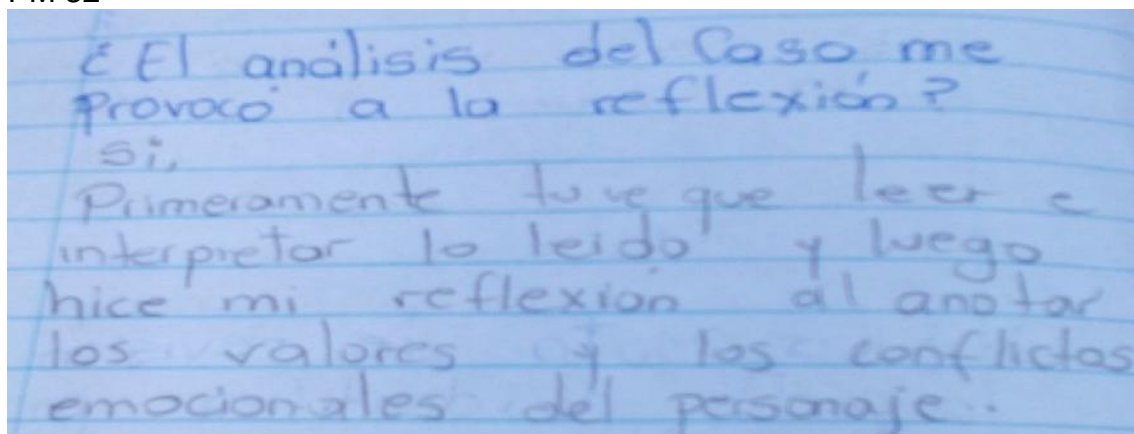 ¿El análisis del Caso me
Provocó a la reflexión?
si,
Primeramente tuve que leer e
interpretar lo leido y luego
hice mi reflexion al anotar
los valores y los conflictos
emocionales del personaje.